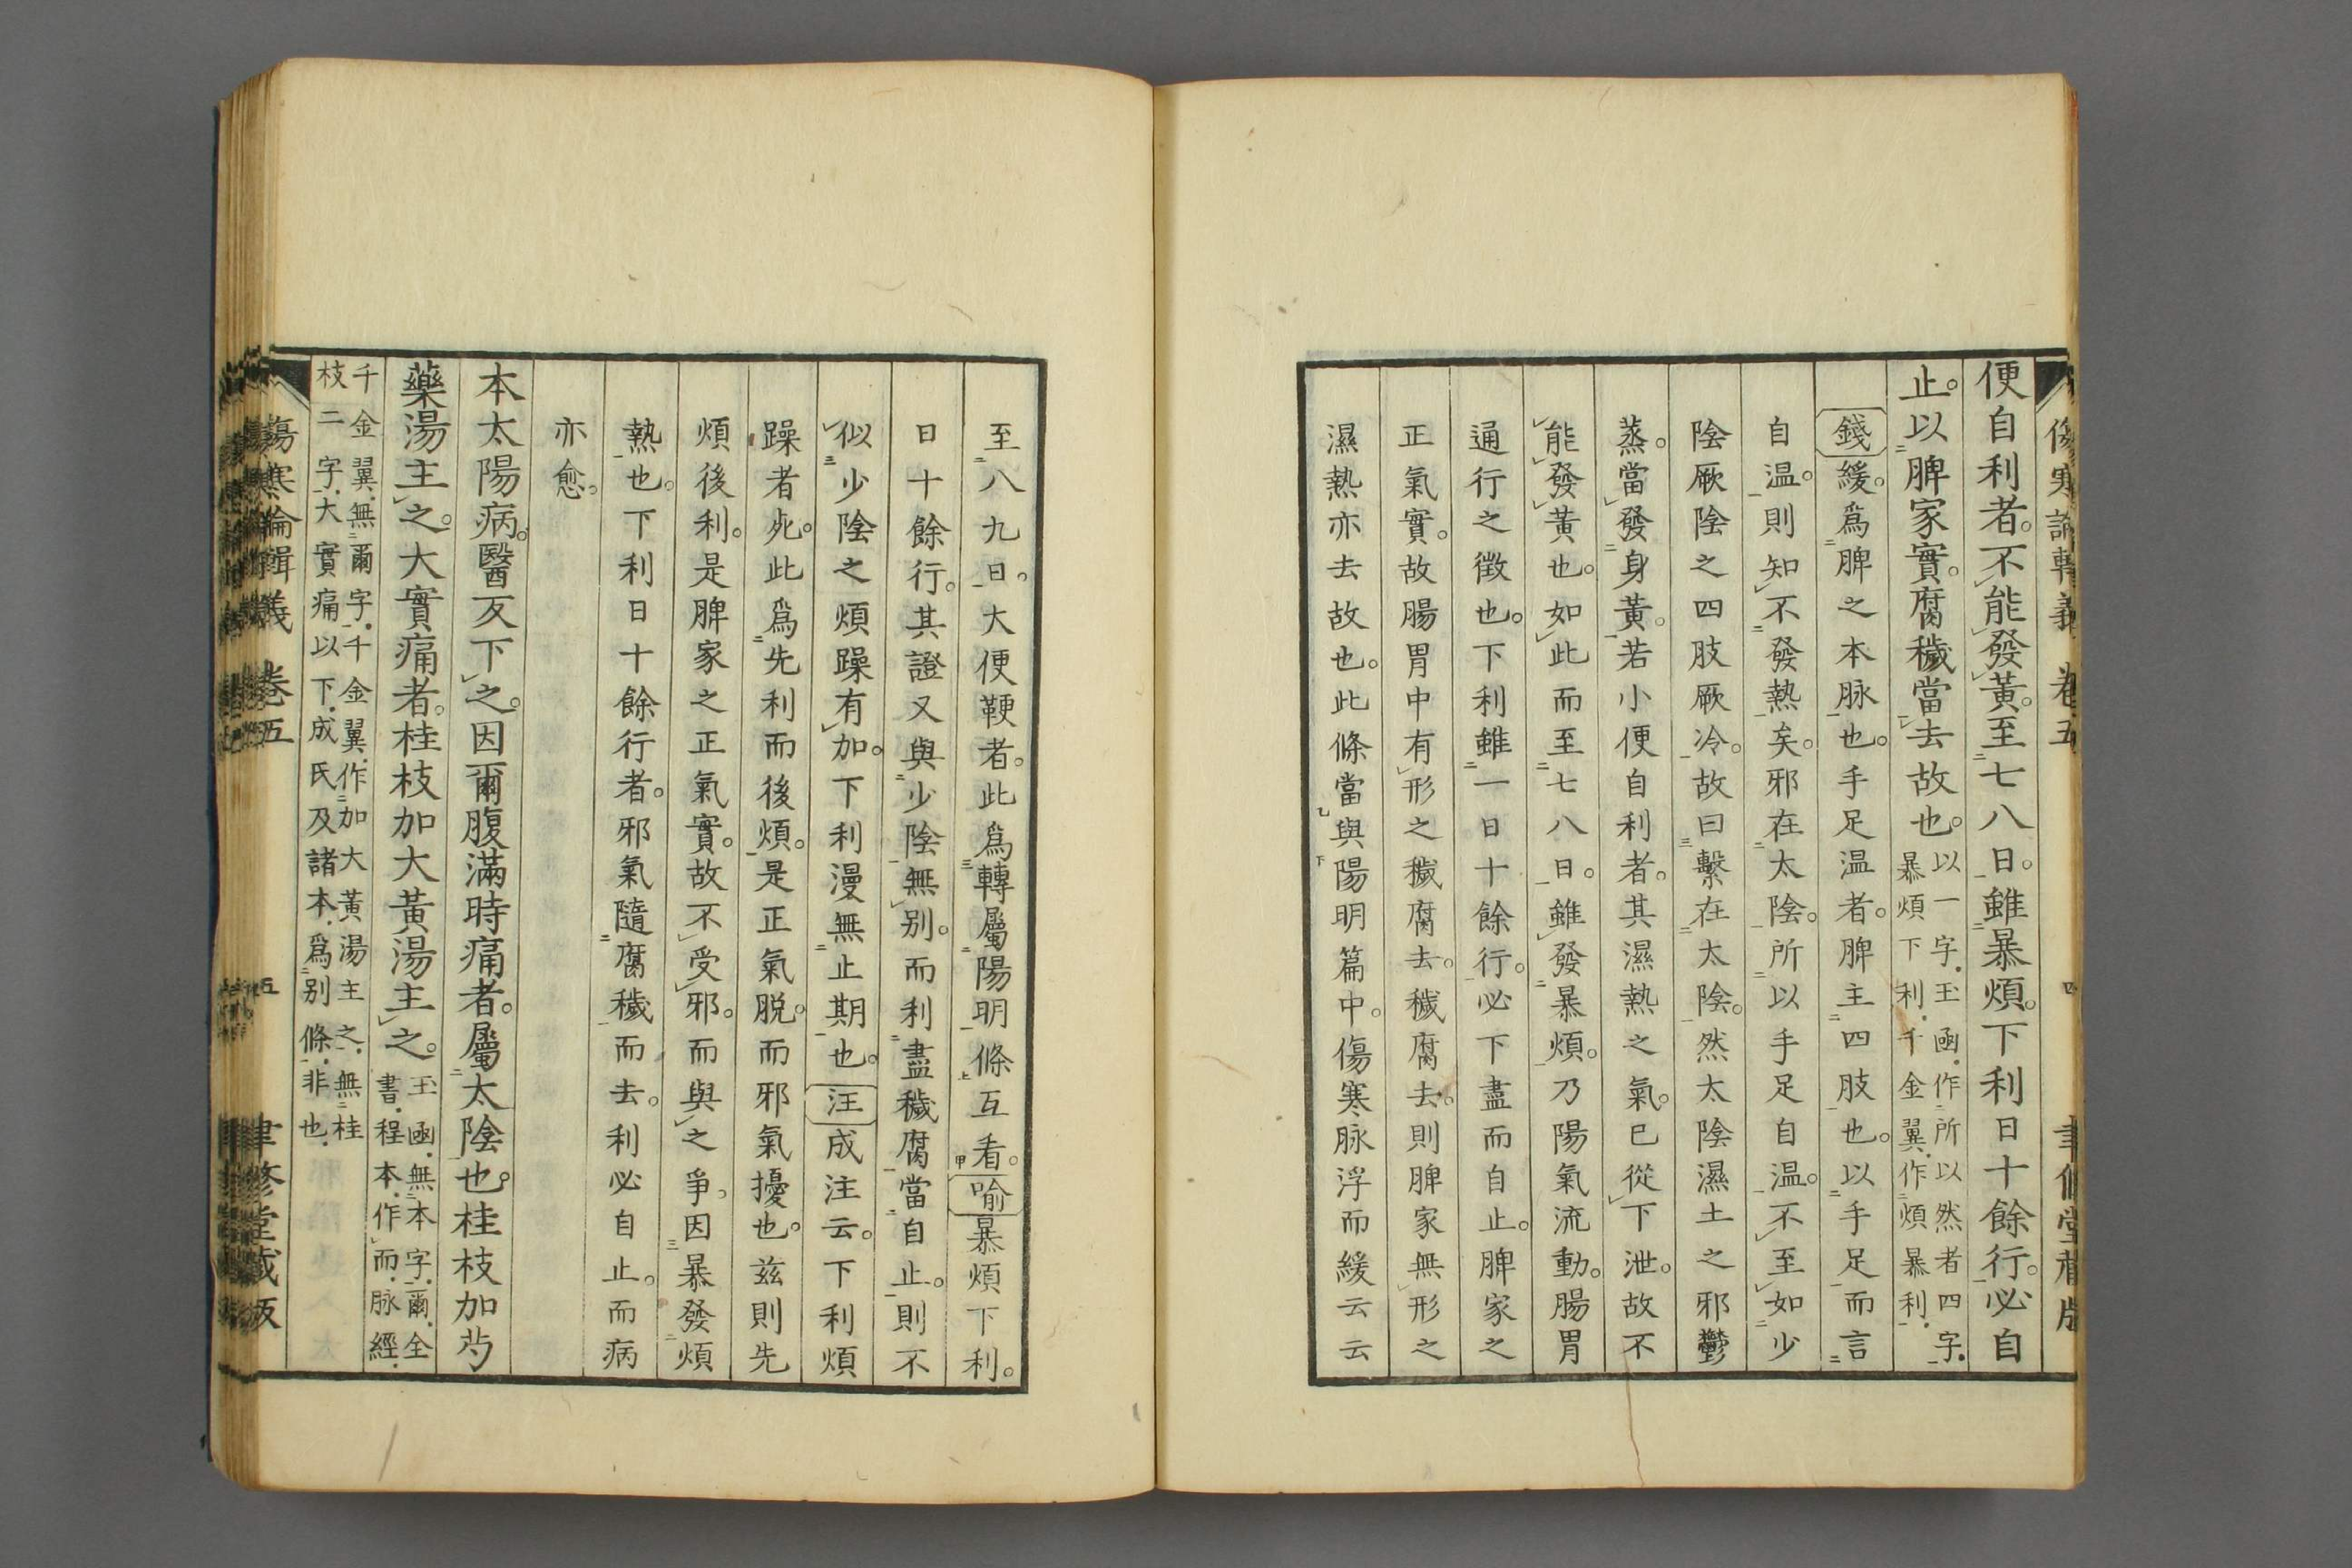 傷寒論輯義 卷五 四 聿修堂藏版
便自利者。不能發黃。至七八日。雖暴煩。下利日十餘行。必自
止。以脾家實。腐穢當去故也。以一字。玉函。作所以然者四字。
暴煩下利。千金翼。作煩暴利。
錢緩。爲脾之本脉也。手足温者。脾主四肢也。以手足而言
自温。則知不發熱矣。邪在太陰。所以手足自温。不至如少
陰厥陰之四肢厥冷。故曰繫在太陰。然太陰濕土之邪鬱
蒸。當發身黃。若小便自利者。其濕熱之氣。已從下泄。故不
能發黃也。如此而至七八日。雖發暴煩。乃陽氣流動。腸胃
通行之徵也。下利雖一日十餘行。必下盡而自止。脾家之
正氣實。故腸胃中有形之穢腐去。穢腐去。則脾家無形之
濕熱亦去故也。此條當與陽明篇中。傷寒脉浮而緩云云
至八九日。大便鞕者。此爲轉屬陽明條互看。喻暴煩下利。
日十餘行。其證又與少陰無别。而利盡穢腐當自止。則不
似少陰之煩躁有加。下利漫無止期也。汪成注云。下利煩
躁者死。此爲先利而後煩。是正氣脱。而邪氣擾也。兹則先
煩後利。是脾家之正氣實。故不受邪。而與之爭。因暴發煩
熱也。下利日十餘行者。邪氣隨腐穢而去。利必自止。而病
亦愈。
本太陽病。醫反下之。因爾腹滿時痛者。屬太陰也。桂枝加芍
藥湯主之。大實痛者。桂枝加大黃湯主之。玉函。無本字。爾。全
書。程本。作而。脉經。
千金翼。無爾字。千金翼。作加大黃湯主之。無桂
枝二字。大實痛以下。成氏及諸本。爲别條。非也。
傷寒論輯義 卷五 五 聿修堂藏版